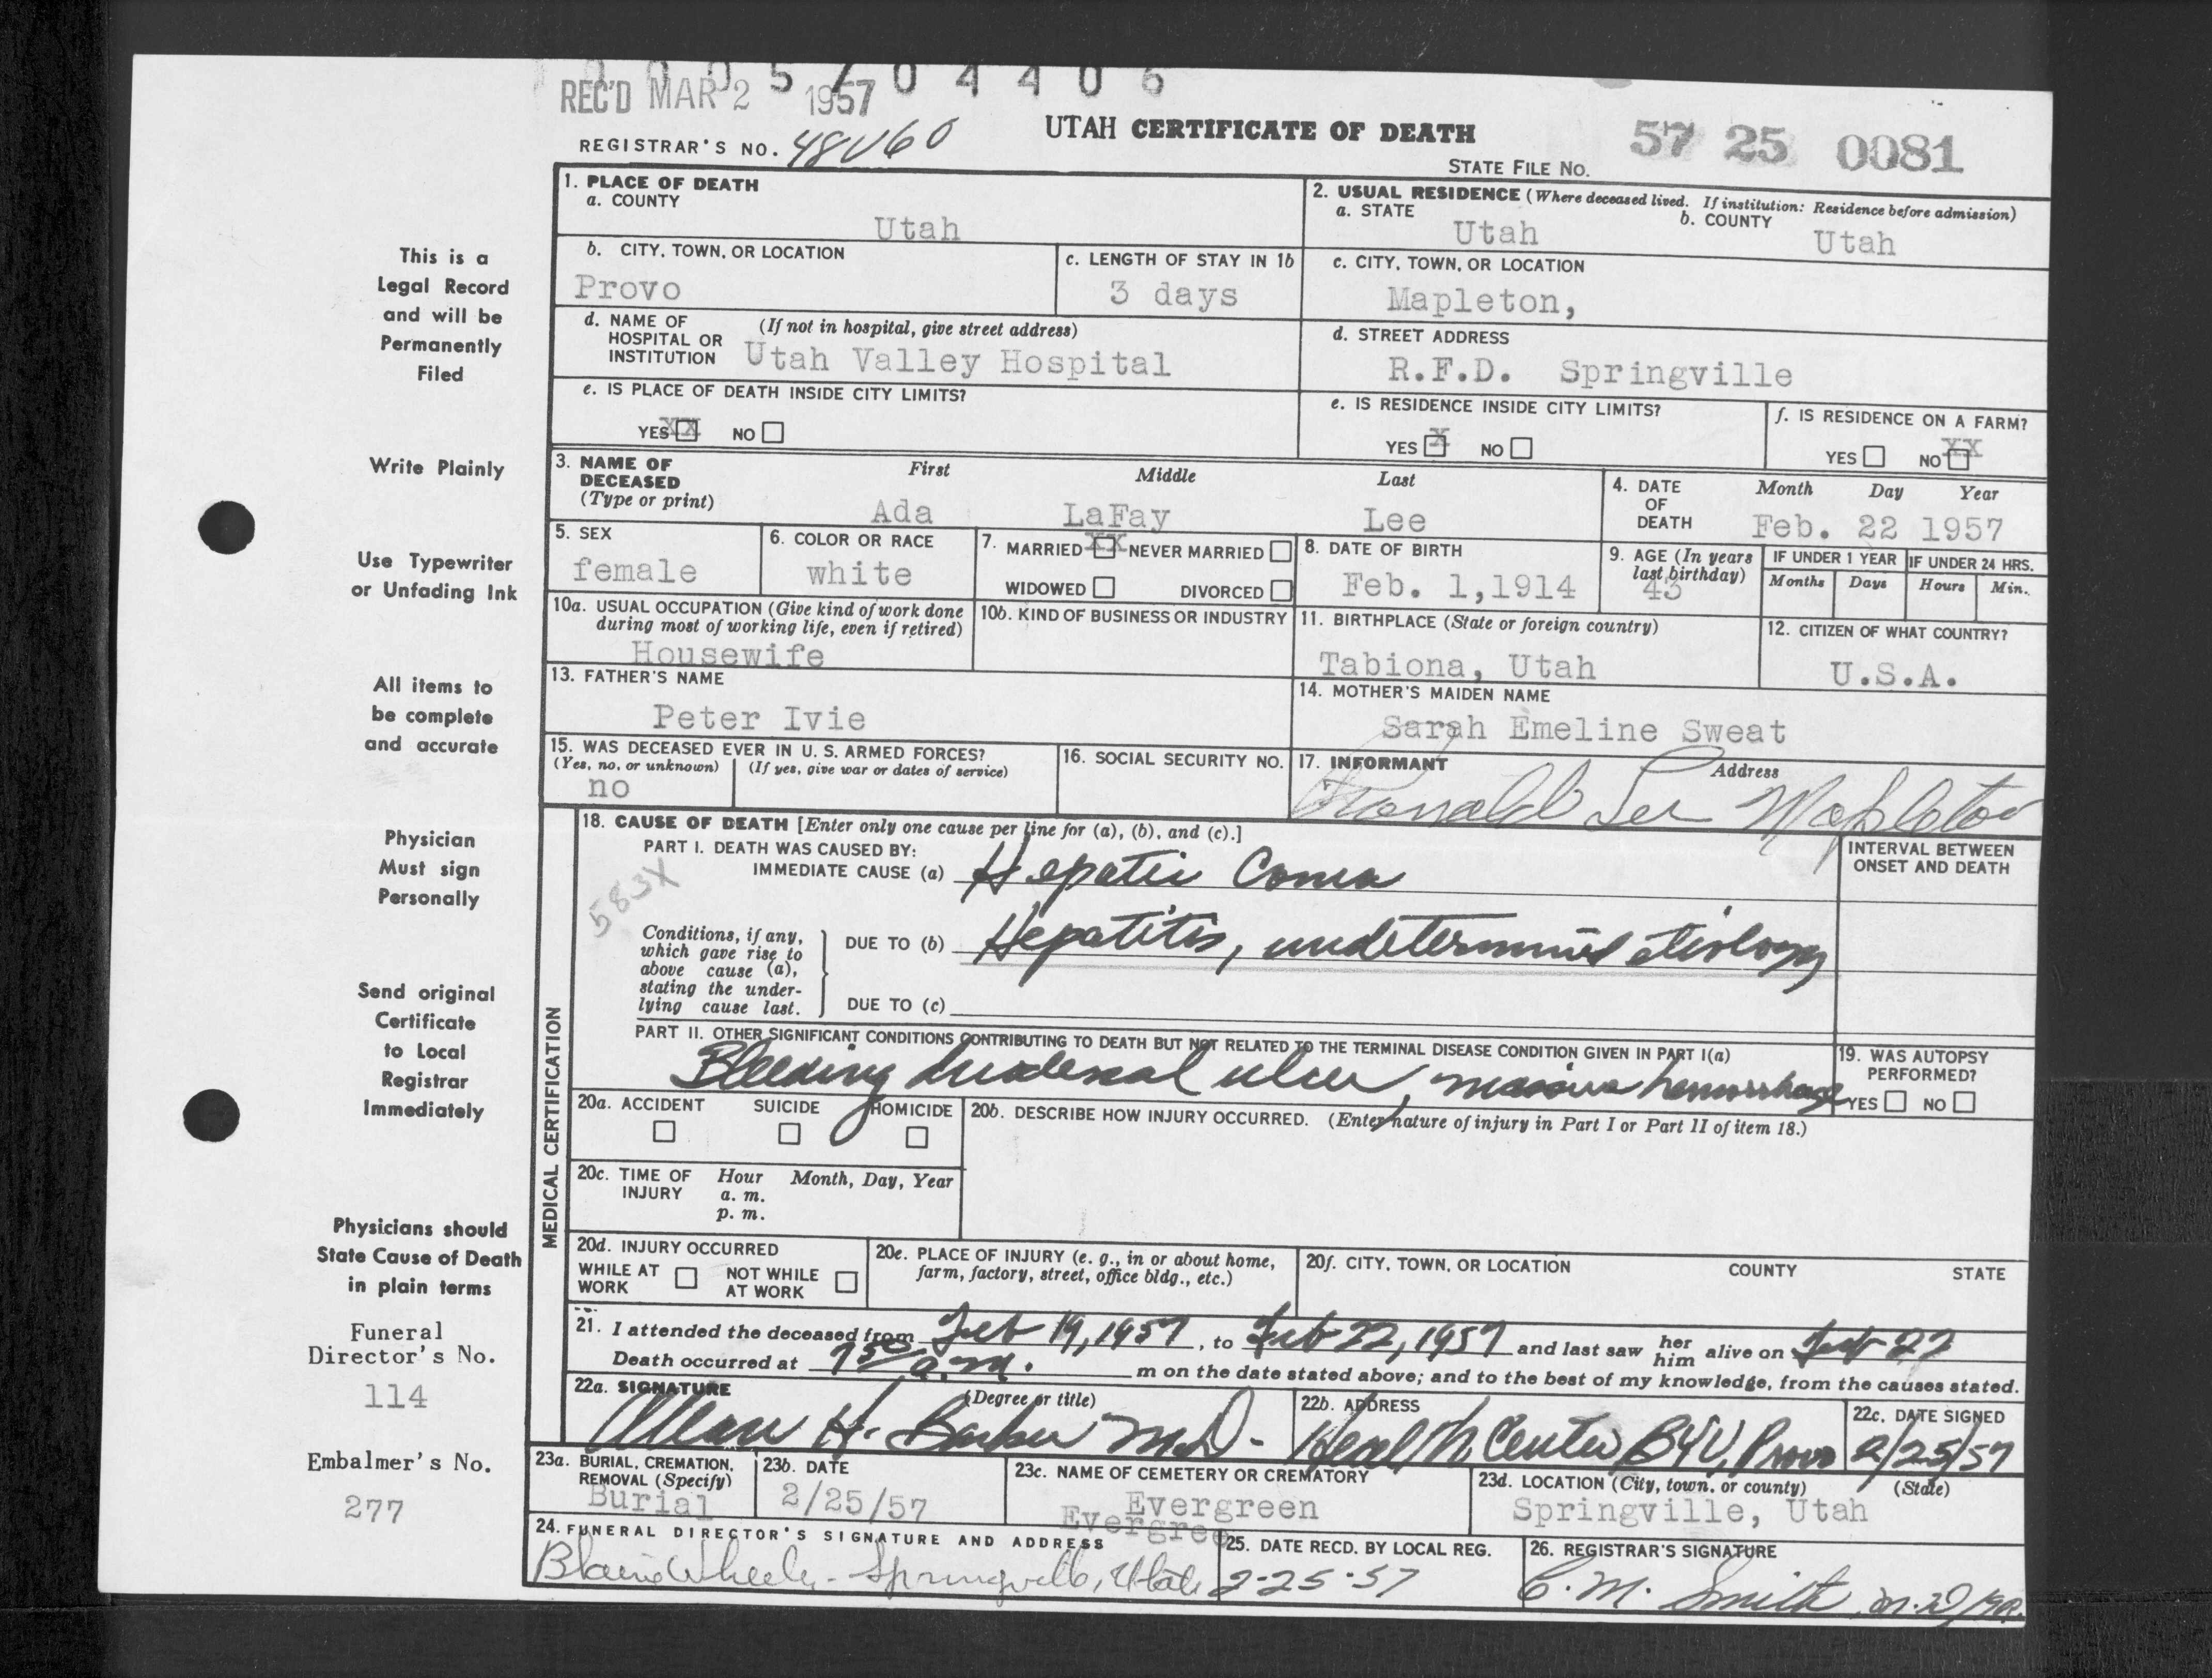 0 0 0 5 7 0 4 4 0 6
REC'D MAR 2 1957
REGISTRAR'S NO. 48V60
UTAH CERTIFICATE OF DEATH
STATE FILE NO. 57 25 0081
This is a
Legal Record
and will be
Permanently
Filed
Write Plainly
Use Typewriter
or Unfading Ink
All items to
be complete
and accurate
Physician
Must sign
Personally
Send original
Certificate
to Local
Registrar
Immediately
Physicians should
State Cause of Death
in plain terms
Funeral
Director's No.
114
Embalmer's No.
277
1. PLACE OF DEATH
a. COUNTY
Utah
2. USUAL RESIDENCE (Where deceased lived. If institution: Residence before admission)
a. STATE Utah b. COUNTY Utah
b. CITY, TOWN, OR LOCATION
Provo
c. LENGTH OF STAY IN 1b
3 days
c. CITY, TOWN, OR LOCATION
Mapleton,
d. NAME OF HOSPITAL OR INSTITUTION (If not in hospital, give street address)
Utah Valley Hospital
d. STREET ADDRESS
R.F.D. Springville
e. IS PLACE OF DEATH INSIDE CITY LIMITS?
YES XX NO
e. IS RESIDENCE INSIDE CITY LIMITS?
YES X NO
f. IS RESIDENCE ON A FARM?
YES NO XX
3. NAME OF DECEASED (Type or print)
First Middle Last
Ada LaFay Lee
4. DATE OF DEATH
Month Day Year
Feb. 22 1957
5. SEX
female
6. COLOR OR RACE
white
7. MARRIED XX NEVER MARRIED
WIDOWED DIVORCED
8. DATE OF BIRTH
Feb. 1,1914
9. AGE (In years last birthday)
43
IF UNDER 1 YEAR
Months Days
IF UNDER 24 HRS.
Hours Min.
10a. USUAL OCCUPATION (Give kind of work done during most of working life, even if retired)
Housewife
10b. KIND OF BUSINESS OR INDUSTRY
11. BIRTHPLACE (State or foreign country)
Tabiona, Utah
12. CITIZEN OF WHAT COUNTRY?
U.S.A.
13. FATHER'S NAME
Peter Ivie
14. MOTHER'S MAIDEN NAME
Sarah Emeline Sweat
15. WAS DECEASED EVER IN U. S. ARMED FORCES?
(Yes, no, or unknown) (If yes, give war or dates of service)
no
16. SOCIAL SECURITY NO.
17. INFORMANT Address
Ronald Lee Mapleton
MEDICAL CERTIFICATION
18. CAUSE OF DEATH [Enter only one cause per line for (a), (b), and (c).]
PART I. DEATH WAS CAUSED BY:
IMMEDIATE CAUSE (a) Hepatic Coma
583X
INTERVAL BETWEEN
ONSET AND DEATH
Conditions, if any, which gave rise to above cause (a), stating the underlying cause last.
DUE TO (b) Hepatitis, undetermined etiology
DUE TO (c)
PART II. OTHER SIGNIFICANT CONDITIONS CONTRIBUTING TO DEATH BUT NOT RELATED TO THE TERMINAL DISEASE CONDITION GIVEN IN PART I(a)
Bleeding duodenal ulcer, massive hemorrhage
19. WAS AUTOPSY PERFORMED?
YES NO
20a. ACCIDENT SUICIDE HOMICIDE
20b. DESCRIBE HOW INJURY OCCURRED. (Enter nature of injury in Part I or Part II of item 18.)
20c. TIME OF INJURY Hour Month, Day, Year
a. m.
p. m.
20d. INJURY OCCURRED
WHILE AT WORK NOT WHILE AT WORK
20e. PLACE OF INJURY (e. g., in or about home, farm, factory, street, office bldg., etc.)
20f. CITY, TOWN, OR LOCATION COUNTY STATE
21. I attended the deceased from Feb 19, 1957, to Feb 22, 1957 and last saw her him alive on Feb 22
Death occurred at 7 50 a.m. m on the date stated above; and to the best of my knowledge, from the causes stated.
22a. SIGNATURE (Degree or title)
Allan H. Barker M.D.
22b. ADDRESS
Health Center BYU, Provo
22c. DATE SIGNED
2/25/57
23a. BURIAL, CREMATION, REMOVAL (Specify)
Burial
23b. DATE
2/25/57
23c. NAME OF CEMETERY OR CREMATORY
Evergreen
Evergree
23d. LOCATION (City, town, or county) (State)
Springville, Utah
24. FUNERAL DIRECTOR'S SIGNATURE AND ADDRESS
Blaine Wheeler - Springville, Utah
25. DATE RECD. BY LOCAL REG.
2-25-57
26. REGISTRAR'S SIGNATURE
C. M. Smith M.D.